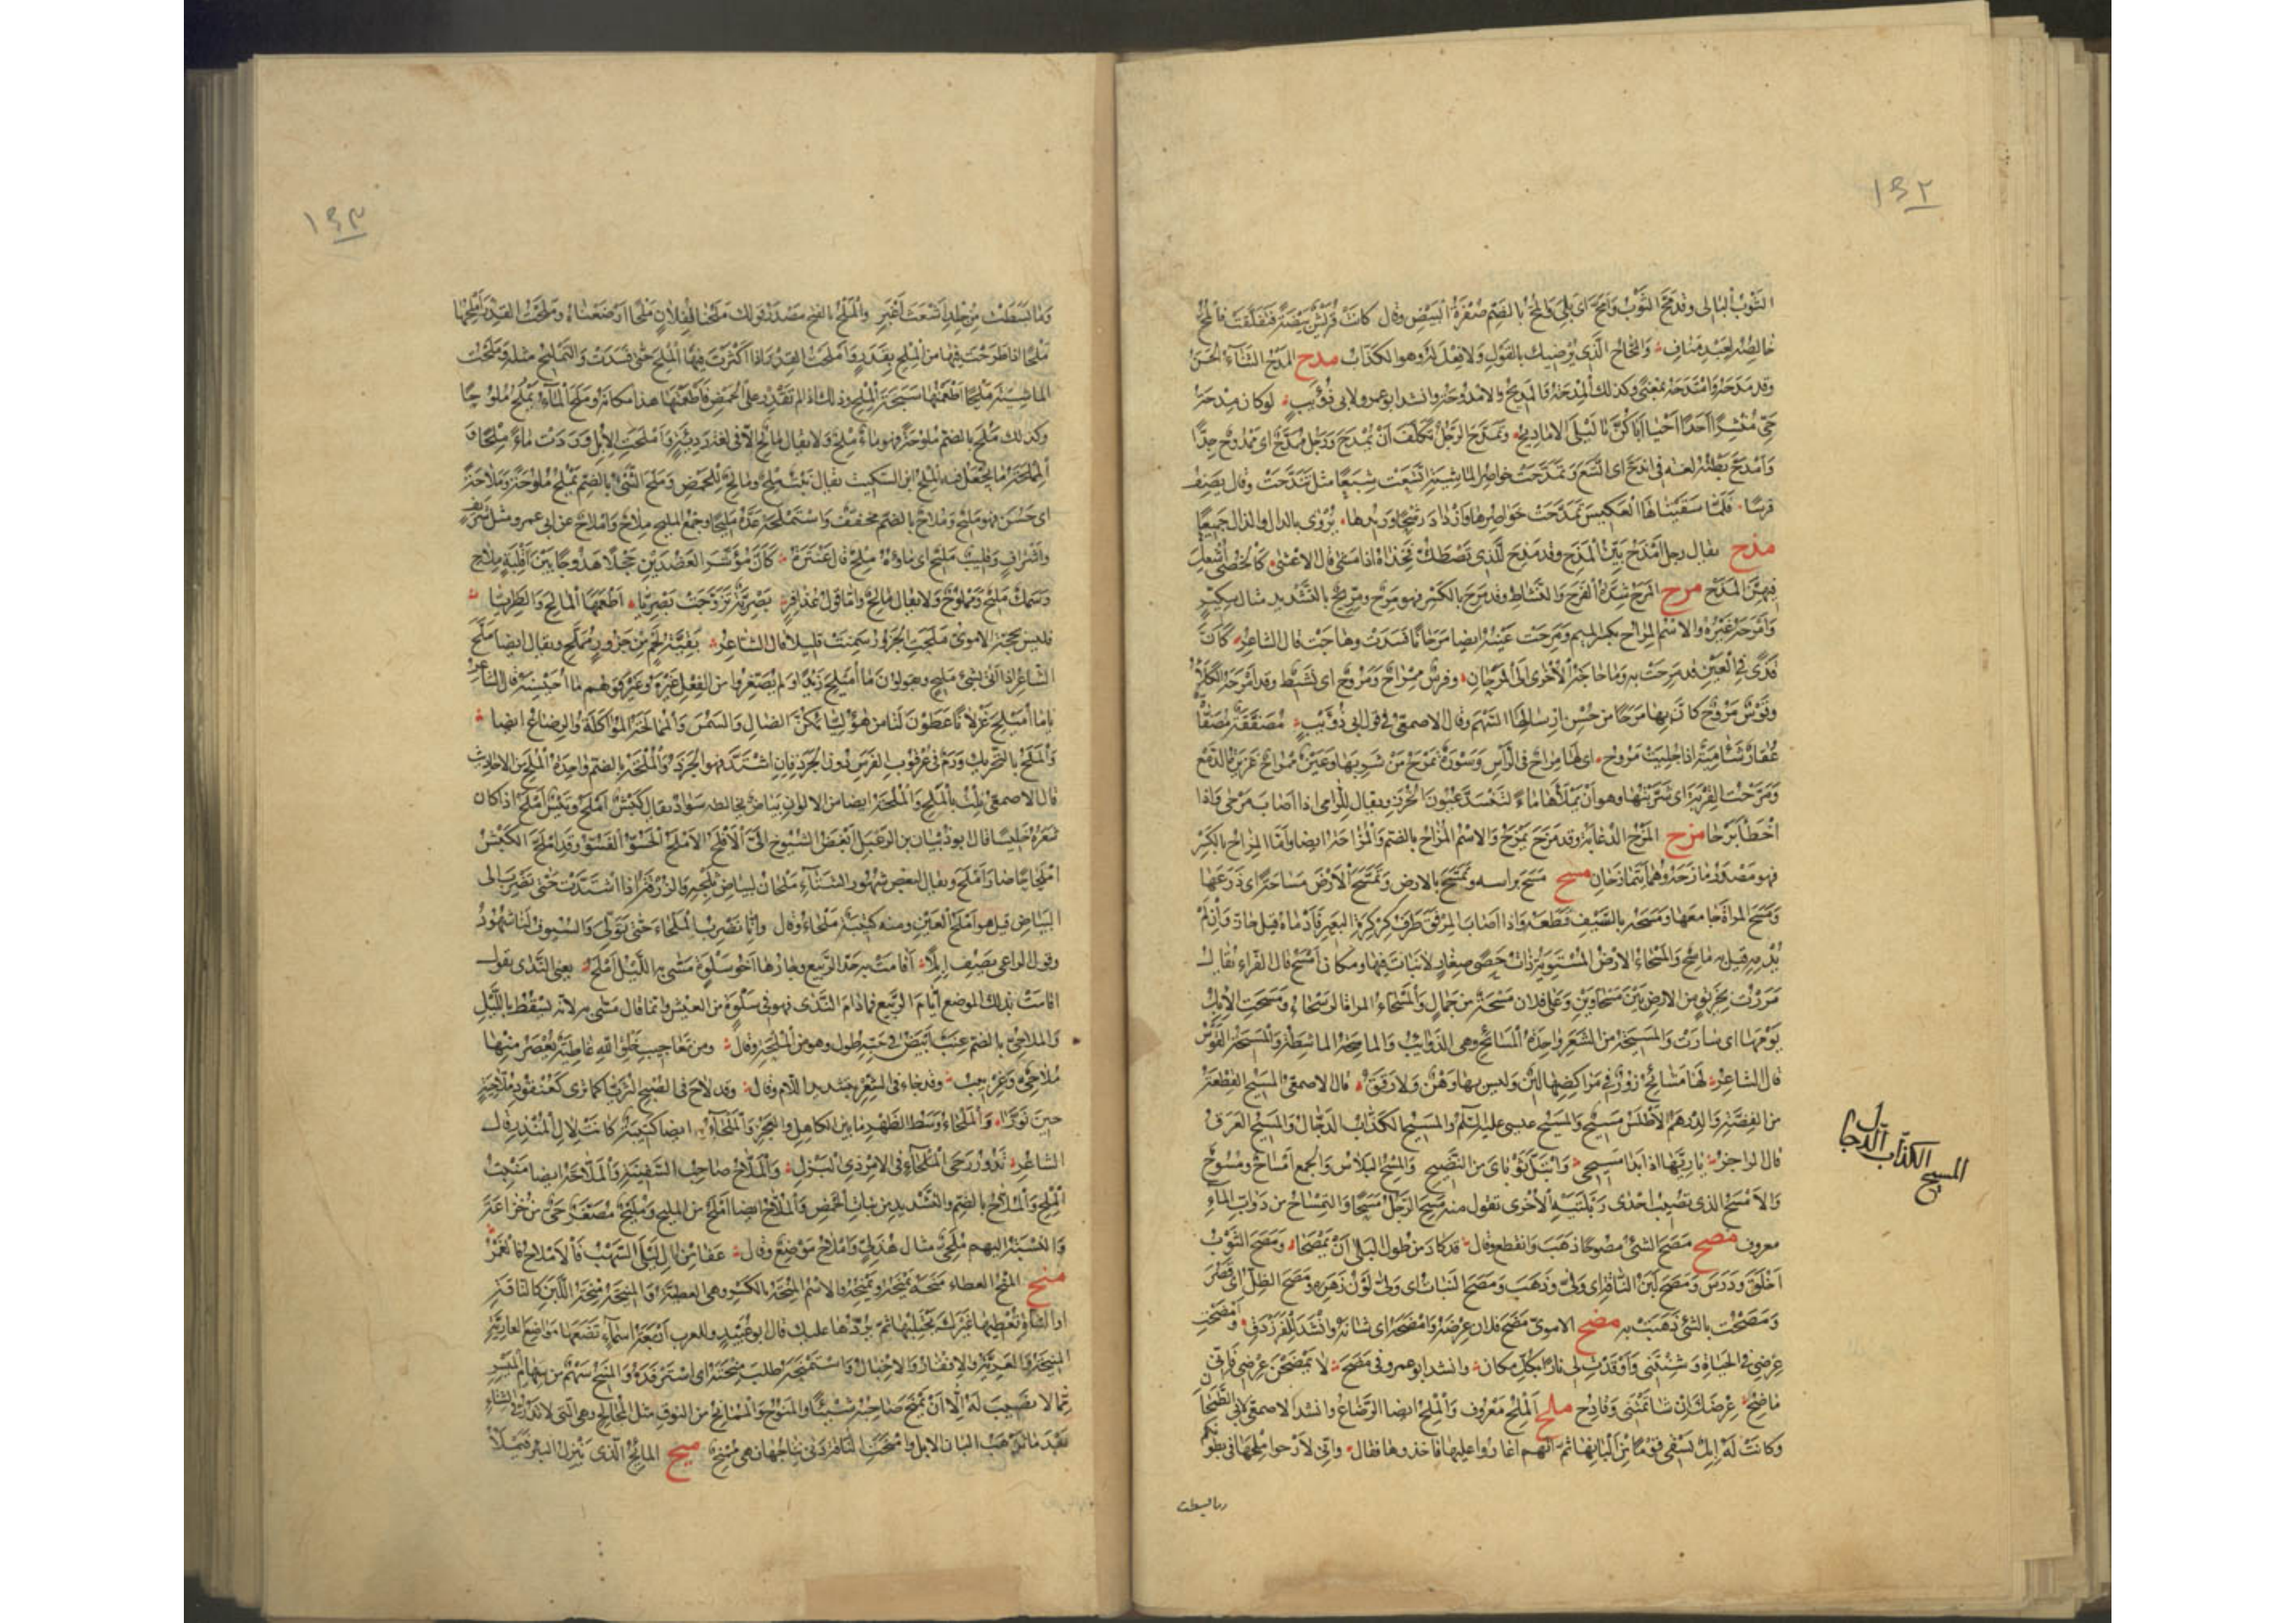 ١٤٢
الثَّوْبُ البَالى وقد مَحَّ الثَّوْبُ وَاَمَحَّ اى بَلِىَ وَالمُحُّ بالضّمِّ صُفْرَةُ البَيْضِ وقال كانَتْ قُرَيْشٌ بَيْضَةً فَتَفَلَّقَتْ فالمُحُّ
خالصُهُ لِعَبْدِ مَنافِ وَالمَحَّاحُ الَّذى يُرْضِيك بالقَوْلِ وَلا فِعْلَ لَهُ وهو الكَذَّابُ مدح المَدْحُ الثَّنَآءُ الحَسَنُ
وقد مَدَحَهُ وَامْتَدَحَهُ بمَعْنىً وكذلك المِدْحَةُ وَالمَدِيحُ والاُمْدُوحَةُ وانشد ابوعمرو لابى ذُؤَيْبٍ لوكان مِدْحَةُ
حَىٍّ مُنْشِرًا اَحَدًا اَحْيَا اَبَاكُنَّ يَا لَيْلَى الامادِيحُ وتَمَدَّحَ الرَّجُلُ تَكَلَّفَ اَنْ يُمْدَحَ وَرَجُلٌ مُمَدَّحٌ اى مَمْدُوحٌ جِدًّا
وَامْدَحَّ بَطْنُهُ لغة فى انْدَحَّ اى اتَّسَعَ وَتَمَدَّحَتْ خواصِرُ الماشِيَةِ اتَّسَعَت شِبَعًا مثل تَنَدَّحَتْ وقال يَصِفُ
فرسًا فَلَمَّا سَقَيْنَاهَا الْعَكِيسَ تَمَدَّحَتْ خَوَاصِرُهَا وَازْدَادَ رَشْحًا وَرِيدُها يُرْوَى بالدال والذال جَميعًا
مذح يقال رجل اَمْذَحُ بَيِّنُ المَذَحِ وقد مَذِحَ لِلَّذى تَصْطَكُّ فَخِذَاهُ اذا مَشَى قال الاعْشَى كَالخُصَى اَشْعَلَ
فِيهِنَّ المَذَحْ مرح المَرَحُ شِدَّةُ الفَرَحِ وَالنَّشَاطِ وقد مَرِحَ بالكَسْرِ فهو مَرِحٌ ومِرِّيحٌ بالتَّشْديدِ مثال سِكِّيرٍ
وَاَمْرَحَهُ غَيْرُهُ والاسْم المِرَاحُ بكسر الميم ومَرِحَتْ عَيْنُهُ ايضا مَرَحَانًا فَسَدَتْ وهاجَتْ قال الشاعِرُ كَاَنَّ
قَذًى فى العَيْنِ قد مَرِحَتْ به وَمَا حاجَةُ الأخْرَى الَى المَرَحَانِ وفرسٌ مِمْرَاحٌ وَمَرُوحٌ اى نَشيطٌ وقد اَمْرَحَهُ الكَلَأُ
وقَوْسٌ مَرُوحٌ كاَنَّ بِهَا مَرَحًا من حُسْنِ اِرْسَالِهَا السَّهْمَ وقال الاصمعىّ فى قول ابى ذُؤَيْبٍ مُصَفَّقَةٌ مُصَفَّاةٌ
عُقَارٌ شَآمِيَةٌ اذا جُلِيَتْ مَروح اى لَهَا مِراحٌ فى الرَّاْسِ وَسَوْرَةٌ يَمْرَحُ مَنْ شَرِبَهَا وَعَيْنٌ مِمْراحٌ غَزِيرَةُ الدَّمْعِ
وَمَرَّحْتُ القِرْبَةَ اى سَرَّبْتُها وهو اَنْ يَمْلَأَهَا مَاءً لتَنْسَدَّ عُيُونُ الخُرَزِ ويقال للرَّامى اذا اَصَابَ مَرْحَى وَاذا
اَخْطَأَ بَرْحَا مزح المَزْحُ الدُّعَابَةُ وقد مَزَحَ يَمْزَحُ وَالاسْمُ المُزَاحُ بالضمّ وَالمُزَاحَةُ ايضا وَاَمَّا المِزَاحُ بالكَسْرِ
فهو مَصْدَرُ مَازَحَهُ وهُمَا يَتَمَازَحَانِ مسح مَسَحَ برأسه وتَمَسَّحَ بالارض وَمَسَحَ الْاَرْضَ مَسَاحَةً اى ذَرَعَها
وَمَسَحَ المَرْاَةَ جامَعَها وَمَسَحَهُ بالسَّيْفِ قَطَعَهُ وَاذا اَصَابَ المِرْفَقُ طَرَفَ كِرْكِرَةِ البَعِيرِ فَاَدْمَاهُ قيل حَازٌّ وَاِنْ لَمْ
يُدْمِهِ قيل به ماسِحٌ وَالمَسْحَاءُ الارْضُ المُسْتَوِيَةُ ذاتُ حَصًى صِغَارٍ لا نَبَاتَ فيها ومكان اَمْسَحُ قال الفَرّاء يُقَالُ
مَرَرْتُ بِخَرِيقٍ مِنَ الارضِ بَيْنَ مَسْحَاوَيْنِ وَعَلَى فلان مَسْحَةٌ من جَمَالٍ وَالمَسْحَاءُ المراة الرَّسْحَاءُ وَمَسَحَتِ الاِبِلُ
يَوْمَهَا اى سَارَتْ وَالمَسِيحَةُ مِنَ الشَّعَرِ وَاحِدَةُ المَسَائِحِ وهى الذَوَائِبُ وَالماسِحَةُ الماشِطَةُ وَالمَسِيحَةُ القَوْسُ
قال الشاعِرُ لَهَا مَسَائِحُ زُورٌ فى مَرَاكِضِهَا لِينٌ وَليس بها وَهْنٌ وَلا رَقَقُ قال الاصمعىّ المَسِيحُ القِطْعَةُ
مِنَ الفِضَّةِ وَالدِّرْهَمُ الأَطْلَسُ مَسِيحٌ وَالمَسِيحُ عيسى عليه السّلم والمَسِيحُ الكَذَّابُ الدَجَّالُ وَالمَسِيحُ العَرَقُ
قال الراجز يَا رِيَّهَا اِذا بَدَا مَسِيحِى وَابْتَلَّ ثَوْبَاىَ مِنَ النَّضِيحِ وَالمِسْحُ البَلَاسُ وَالجمع اَمْسَاحٌ ومُسُوحٌ
وَالاَمْسَحُ الذى تصيبُ احْدَى رَبْلَتَيْهِ الأُخْرَى تقول منه مَسِحَ الرَّجُلُ مَسَحًا وَالتِمْسَاحُ من دَوَابِّ المَآءِ
معروف مصح مَصَحَ الشئُ مُصُوحًا ذَهَبَ وَانقطع وقال قد كادَ مِنْ طولِ البِلَى اَنْ يَمْصَحَا ومَصَحَ الثَّوْبُ
اَخْلَقَ وَدَرَسَ وَمَصَحَ لَبَنُ النّاقةِ اى وَلَّى وَذَهَبَ ومَصَحَ النَبَاتُ اى وَلَّى لَوْنُ زَهْرِهِ ومَصَحَ الظِلُّ اى قَصُرَ
وَمَصَحْتُ بالشّئِ ذَهَبْتُ به مضح الاموىّ مَضَحَ فلان عِرْضَهُ وَاَمْضَحَهُ اى شَانَهُ وانْشَدَ للفَرَزْدَقِ وَاَمْضَحْتِ
عِرْضِى فى الحَيَاةِ وَشِنْتِنى وَاَوْقَدْتِ لى نَارًا بكلّ مكان وانشد ابوعمرو فى مَضَحَ لا تَمْضَحَنْ عِرْضِى فَاِنّى
مَاضِحٌ عِرْضَكَ اِنْ شَاتَمْتَنى وَقَادِحُ ملح المِلْحُ مَعْرُوف وَالمِلْحُ ايضا الرَّضَاعُ وانشد الاصمعى لابى الطَّمَحَانِ
وكانَتْ لَهُ اِبِلٌ يَسْقِى قومًا مِنْ اَلْبَانِهَا ثمّ اَنّهم اغَاروا عليها فاخذوها فقال وَاِنّى لاَرْجوا مِلْحَهَا فى بطونكم
وما بسطت
المسيح الكذّاب الدجال
١٤٣
وَمَا بَسَطَتْ مِنْ جِلْدِ اَشْعَثَ اَغْبَرِ والمَلْحُ بالفتح مصدرُ قولك مَلَحْنَا لفلانٍ مَلْحًا اَرْضَعْناهُ ومَلَحْتُ القِدْرَ اَمْلِحُهَا
مَلْحًا اذا طَرَحْتَ فيها من المِلْحِ بِقَدَرٍ وَاَمْلَحْتُ القِدْرَ اذا اَكْثَرْتَ فِيهَا المِلْحَ حَتّى فَسَدَتْ وَالتَّمْلِيحُ مثله ومَلَّحْتُ
الماشِيَةَ تَمْليحًا اَطْعَمْتُها سَبَخَةَ المِلْحِ وذلك اذا لم تَقْدِرْ على الحَمْضِ فَاَطْعَمْتَهَا هذا مكانَهُ ومَلَحَ المَآءُ يَمْلُحُ مُلُوحًا
وكذلك مَلُحَ بالضمّ مُلُوحَةً فهو ماءٌ مِلْحٌ ولا يقال مَالِحٌ الّا فى لغة رَدِيئَةٍ وَاَمْلَحَتِ الاِبِلُ وَرَدَتْ مَاءً مِلْحًا وَ
المَلَّاحَةُ مَا يُجْعَلُ فيه المِلْحُ ابن السّكيت يقال نَبْتٌ مِلْحٌ ومالِحٌ لِلحَمْضِ وَمَلُحَ الشّئُ بالضّم يَمْلُحُ مُلُوحَةً وَمَلاَحَةً
اى حَسُنَ فهو مَلِيحٌ وَمُلاحٌ بالضم مخففٌ وَاسْتَمْلَحَهُ عَدَّهُ مَلِيحًا وجمع المليح مِلَاحٌ وَاَمْلاَحٌ عن ابى عمرو مثل شَرِيفٍ
وَاَشْرَافٍ وقليبٌ مَليحٌ اى مَاؤُهُ مِلْحٌ قال عَنْتَرَةُ كَاَنَّ مُؤَشَّرَ العَضُدَيْنِ جَحْلاً هَدُوجًا بَيْنَ اَقْلِبَةٍ مِلاحِ
وَسَمَكٌ مَلِيحٌ وَمَمْلُوحٌ ولا يقال مَالِحٌ وامّا قولُ عُذَافِرٍ بَصْرِيَّةٌ تَزَوَّجَتْ بَصْرِيّا يُطْعِمُهَا المَالِحَ وَالطَّرِيّا
فليس بحُجَّةٍ الاموىّ مَلَّحَتِ الجَزُورُ سَمِنَتْ قليلاً قال الشّاعِرُ بَقِيَّةُ لَحْمٍ مِنْ جَزُورٍ مُمَلَّحِ ويقال ايضا مَلَّحَ
الشاعِرُ اذا اَتَى بشئٍ مَلِيحٍ ويقولون مَا اُمَيْلِحَ زَيْدًا وَلَم يُصَغِّرُوا من الفِعْلِ غَيْرَهُ وغَيْرَ قولهم مَا اُحَيْسِنَهُ قال الشاعر
يَا مَا اُمَيْلِحَ غِزْلاَنًا عَطَوْنَ لَنَا مِن هٰؤُلَيَّائِكُنَّ الضَّالِ وَالسَّمُرِ وَالمُمَالَحَةُ المُؤَاكَلَةُ وَالرِضَاعُ ايضا
وَالمَلَحُ بالتحْريكِ وَرَمٌ فى عُرْقُوبِ الفَرَسِ دُونَ الجَرَذِ فاِنِ اشْتَدَّ فهو الجَرَذُ وَالمُلْحَةُ بالضم وَاحِدَةُ المُلَحِ مِنَ الاحاديث
قال الاصمعىّ نِلْتُ بالمُلَحِ وَالمُلْحَةُ ايضا من الالوانِ بَيَاضٌ يخالطه سَوَادٌ يقال كَبْشٌ اَمْلَحُ وتَيْسٌ اَمْلَحُ اذا كان
شَعَرُهُ خَلِيسًا قال ابوذُبْيَان بن الرَّعْبَلِ اَبْغَضُ الشُّيُوخِ الَىَّ الأَقْلَحُ الأَمْلَحُ الحَسُوُّ الفَسُوُّ وقد امْلَحَّ الكَبْشُ
امْلِحَاحًا صَارَ اَمْلَحَ ويقال لبعض شُهُورِ الشّتَآءِ مَلْحَانُ لبياضِ ثَلْجِهِ وَالزُّرْقَةُ اذا اشْتَدَّتْ حَتّى تَضْرِبَ الى
البَيَاضِ قيل هو اَمْلَحُ العَيْنِ ومنه كَتِيبَةٌ مَلْحَاءُ وقال وَاِنَّا نَضْرِبُ المَلْحَاءَ حَتَّى تُوَلِّىَ وَالسُّيُوفُ لَنَا شُهُودُ
وقول الراعى يَصِفُ اِبِلاً اَقَامَتْ بِهِ حَدَّ الرَّبِيعِ وجَارُهَا اَخُو سَلْوَةٍ مَسَّى بِهِ اللَّيْلُ اَمْلَحُ يعنى النَّدَى يقول
اقامَتْ بذلك الموضع اَيَّامَ الرَّبيعِ فما دَامَ النَّدَى فهو فى سَلْوَةٍ من العَيْشِ وانّما قال مسّى به لأَنَّه يَسْقُطُ باللَّيْلِ
وَالمُلَاحِىُّ بالضم عِنَبٌ اَبْيَضُ فى حَبِّهِ طُول وهو من المُلْحَةِ وقال ومن تَعَاجِيبِ خَلْقِ اللهِ غَاطِيَةٌ يُعْصَرُ مِنْهَا
مُلاَحِىٌّ وَغِرْبِيبُ وقد جَاءَ فى الشِّعْرِ بتشديد اللّام وقال وقد لاَحَ فى الصُّبْحِ الثُّرَيَّا كمَا تَرَى كَعُنْقُودِ مُلاَّحِيَّةٍ
حِينَ نَوَّرَا وَالمَلْحَاءُ وَسَطُ الظَّهْرِ مَا بَيْنَ الكاهِلِ وَالعَجُزِ وَالمَلْحَآءُ ايضا كَتِيبَةٌ كانَتْ لآلِ المُنْذِرِ قال
الشاعِرُ تَدُورُ رَحَى المَلْحَآءِ فى الامْرِ ذِى البَزْلِ وَالمَلاَّحُ صَاحِبُ السَّفِينَةِ وَالمَلَّاحَةُ ايضا مَنْبِتُ
المِلْحِ وَالمُلَّاحُ بالضّم والتَشْديد من نباتِ الحَمْضِ وَالمُلَّاحُ ايضا اَمْلَحُ مِنَ المَلِيحِ وَمُلَيْحٌ مُصَغّرٌ حَىٌّ مِنْ خُزَاعَةَ
وَالنِّسْبَةُ اليهم مُلَحِىٌّ مثال هُذَلِىٍّ وَالاَمْلاحُ مَوْضِعٌ وقال عَفَا مِنْ آلِ لَيْلَى السَّهْبُ فَالاَمْلاَحُ فَالغَمْرُ
منح المَنْحُ العطاءُ مَنَحَهُ يَمْنَحُهُ ويَمْنِحُهُ والاسْمُ المِنْحَةُ بالكَسْرِ وهى العَطِيَّةُ وَالمَنِيحَةُ مِنْحَةُ اللَّبَنِ كالنّاقةِ
اَوِ الشَّاةِ تُعْطِيهَا غَيْرَكَ يَحْتَلِبُهَا ثمّ يَرُدُّها عليك قال ابوعُبَيْدٍ وللعرب اَرْبَعَةُ اَسْمَاءٍ تَضَعُهَا مَوَاضِعَ العارِيَّةِ
المَنِيحَةُ وَالعَرِيَّةُ والاِفْقَارُ وَالاِخْبَالُ وَاسْتَمْنَحَهُ طَلَبَ مِنْحَتَهُ اى اسْتَرْفَدَهُ وَالمَنِيحُ سَهْمٌ من سِهَامِ المَيْسِرِ
ممّا لا نَصِيبَ لَهُ الّا اَنْ يُمْنَحَ صَاحِبُهُ شَيْئًا وَالمَنُوحُ وَالمُمَانِحُ مِنَ النوقِ مثل المُجَالِحِ وهى الّتى تَدِرُّ فى الشّتاءِ
بَعْدَ مَا تَذْهَبُ اَلبانُ الاِبِل وَاَمْنَحَتِ النَّاقةُ دَنَى نِتَاجُهَا فهى مُمْنِحٌ ميح المَائِحُ الَّذى يَنْزِلُ البِئْرَ فَيَمْلَأُ